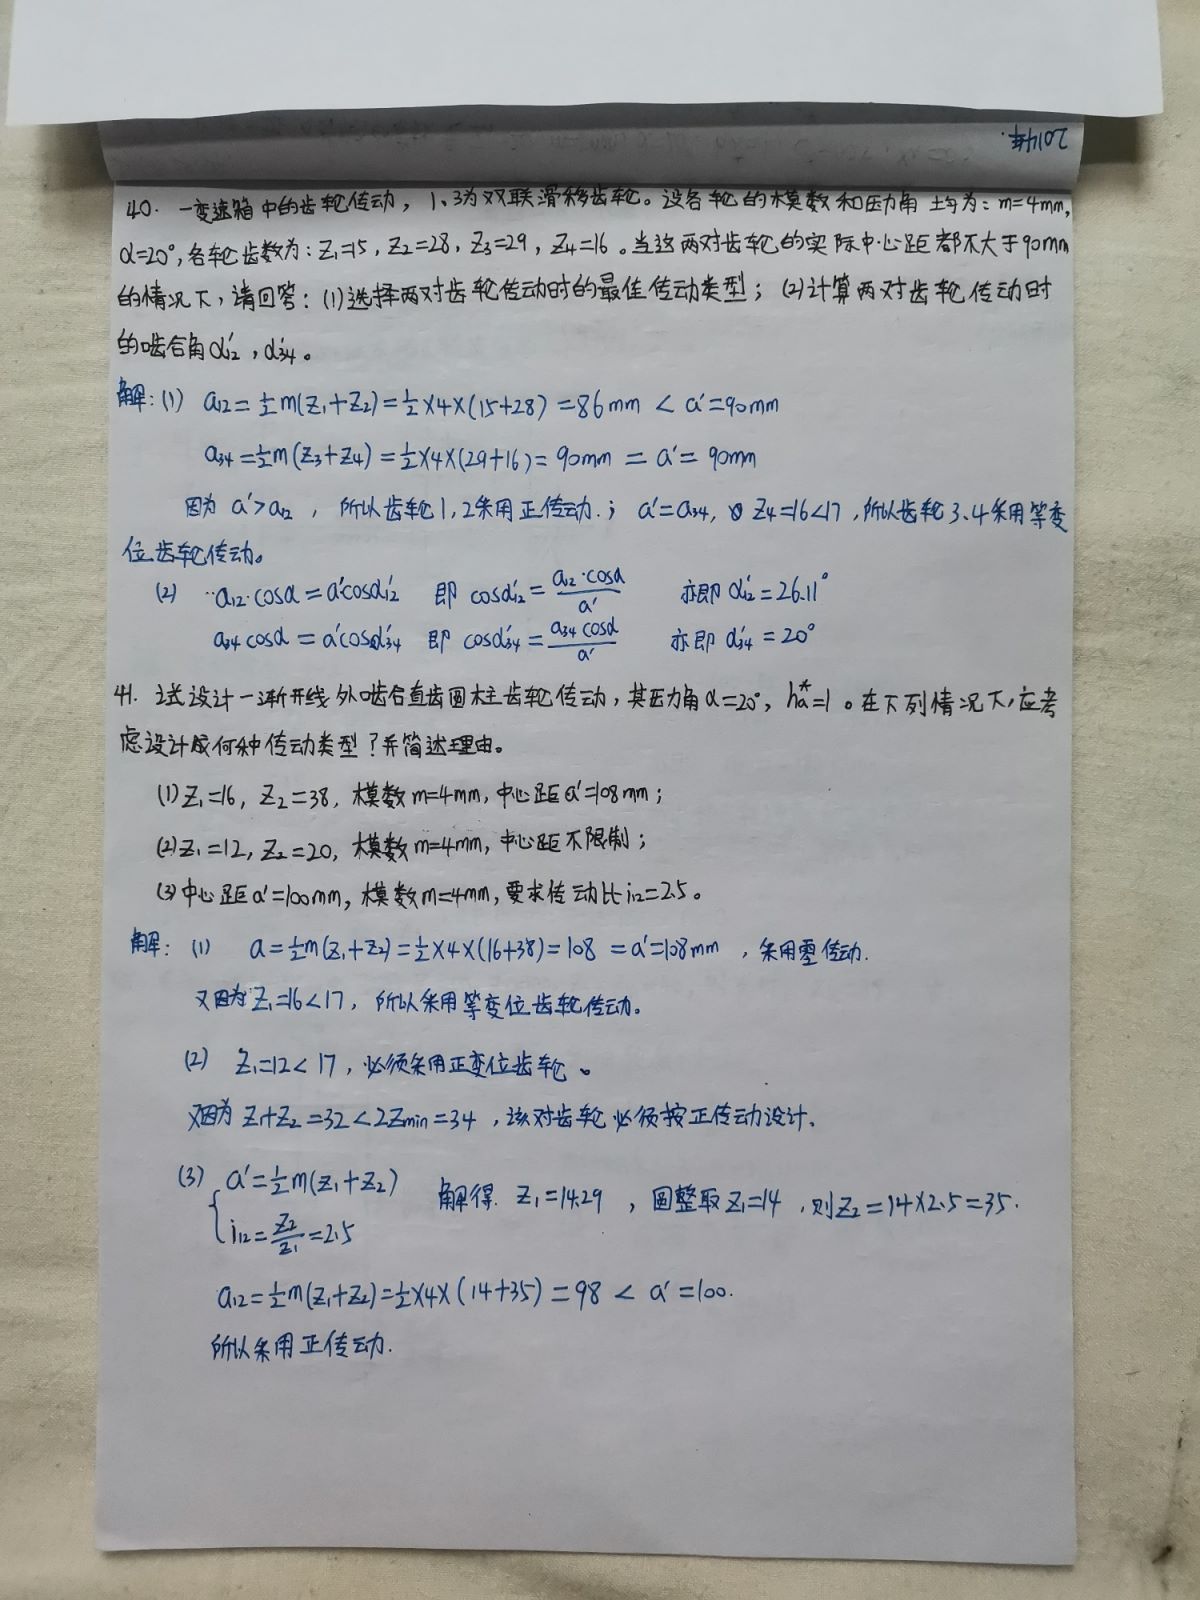 2014年.
40. 一变速箱中的齿轮传动，1、3为双联滑移齿轮。设各轮的模数和压力角均为：m=4mm,
α=20°,各轮齿数为：Z₁=15，Z₂=28，Z₃=29，Z₄=16。当这两对齿轮的实际中心距都不大于90mm
的情况下，请回答：(1)选择两对齿轮传动时的最佳传动类型；(2)计算两对齿轮传动时
的啮合角α'₁₂，α'₃₄。
解：(1) a₁₂=½m(Z₁+Z₂)=½×4×(15+28)=86mm < a'=90mm
a₃₄=½m(Z₃+Z₄)=½×4×(29+16)=90mm = a'=90mm
因为 a'>a₁₂ ，所以齿轮1,2采用正传动.； a'=a₃₄, Z₄=16<17,所以齿轮3、4采用等变
位齿轮传动。
(2) a₁₂·cosα=a'cosα'₁₂ 即 cosα'₁₂=a₁₂·cosα/a' 亦即 α'₁₂=26.11°
a₃₄cosα=a'cosα'₃₄ 即 cosα'₃₄=a₃₄cosα/a' 亦即 α'₃₄=20°
41. 试设计一渐开线外啮合直齿圆柱齿轮传动，其压力角α=20°，hₐ*=1。在下列情况下,应考
虑设计成何种传动类型？并简述理由。
(1)Z₁=16，Z₂=38，模数m=4mm,中心距a'=108mm；
(2)Z₁=12，Z₂=20，模数m=4mm,中心距不限制；
(3)中心距a'=100mm,模数m=4mm,要求传动比i₁₂=2.5。
解：(1) a=½m(Z₁+Z₂)=½×4×(16+38)=108 =a'=108mm ，采用零传动.
又因为Z₁=16<17，所以采用等变位齿轮传动。
(2) Z₁=12<17，必须采用正变位齿轮。
又因为Z₁+Z₂=32<2Zmin=34，该对齿轮必须按正传动设计.
(3) { a'=½m(Z₁+Z₂)
i₁₂=Z₂/Z₁=2.5 解得. Z₁=14.29 ，圆整取Z₁=14 ，则Z₂=14×2.5=35.
a₁₂=½m(Z₁+Z₂)=½×4×(14+35)=98 < a'=100.
所以采用正传动.